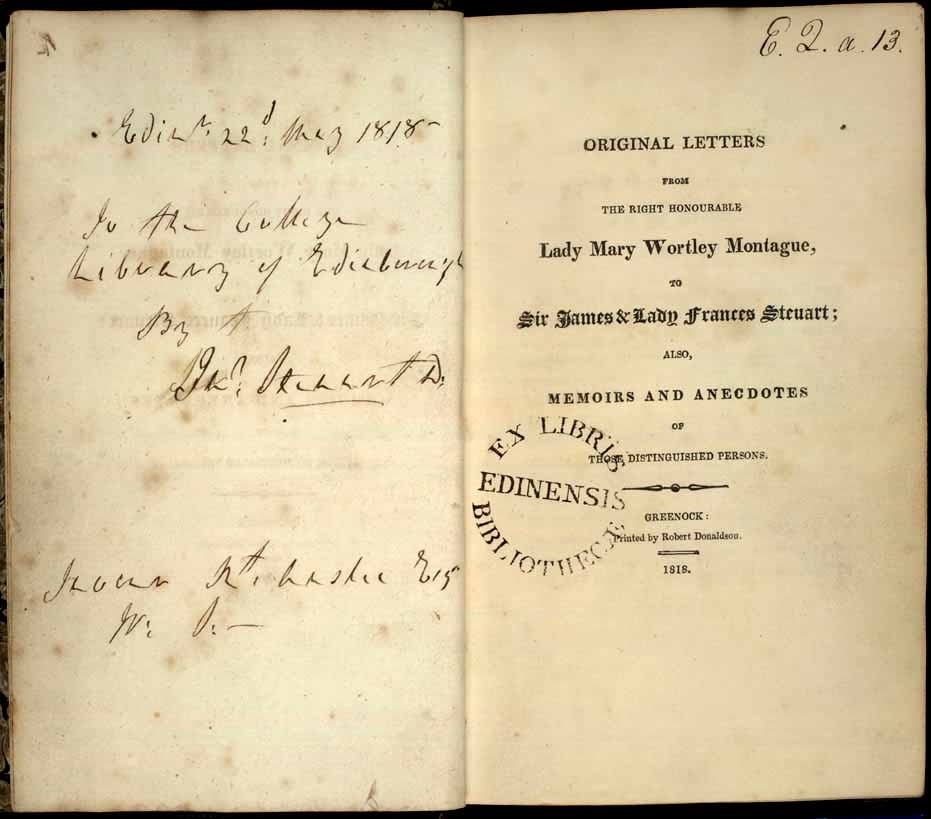 Edinr. 22d. May 1818
To the College
Library of Edinburgh
By
Steuart D:
Esq
W: S:—
E. 2. a. 13.
ORIGINAL LETTERS
FROM
THE RIGHT HONOURABLE
Lady Mary Wortley Montague,
TO
Sir James & Lady Frances Steuart;
ALSO,
MEMOIRS AND ANECDOTES
OF
THOSE DISTINGUISHED PERSONS.
EX LIBRIS
EDINENSIS
BIBLIOTHECÆ
GREENOCK:
Printed by Robert Donaldson.
1818.